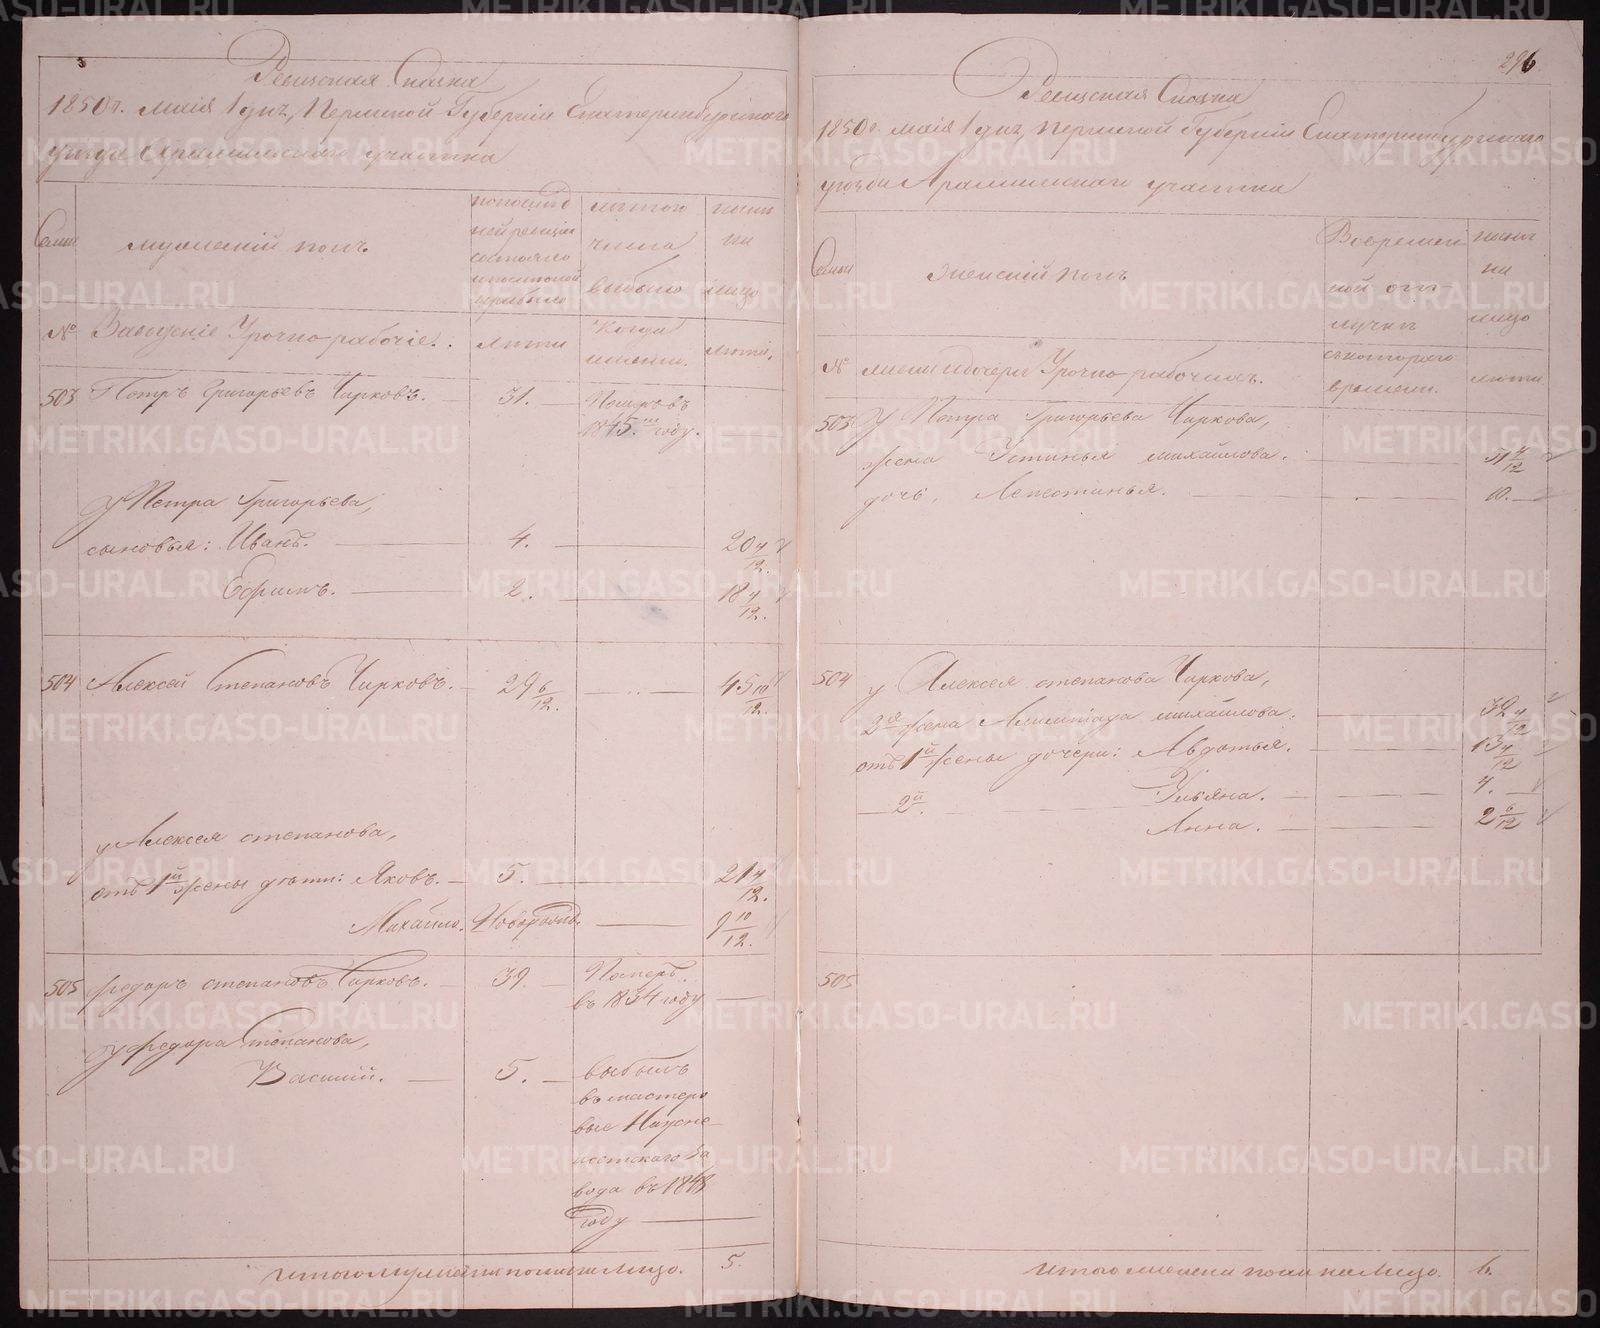 Ревизская Сказка
1850 г. маія 1 дня, Пермской Губерніи Екатеринбургскаго
уезда Арамильскаго участка
Семьи
мужеский полъ.
по послед
ней ревизіи
состояло
и после оной
прибыло
изъ того
числа
выбыло
ныне
на
лицо
№
Заводскіе Урочно-рабочіе.
лета
Когда
именно.
лета.
503 Петръ Григорьевъ Чирковъ. 31. Померъ въ
1845.м году.
у Петра Григорьева,
сыновья: Иванъ. 4. 20 4/12.
Ефимъ. 2. 18 4/12.
504 Алексей Степановъ Чирковъ. 29 6/12. 45 10/12.
у Алексея степанова,
отъ 1й жены дети: Яковъ. 5. 21 4/12.
Михайло. Новорожд. 9 10/12.
505 Федоръ степановъ Чирковъ. 39. Померъ.
въ 1834 году
у федора Степанова,
Василий. 5. выбылъ
въ мастеро
вые Нижне
исетскаго за
вода въ 1848
году
Итого мужеска пола на лицо. 5.
296
Ревизская Сказка
1850 г. маія 1 дня, Пермской Губерніи Екатеринбургскаго
уезда Арамильскаго участка
Семьи
женскій полъ
Во времен
ной от-
лучке
ныне
на
лицо
№
жены и дочери Урочно-рабочихъ.
съ котораго
времени.
лета
503 У Петра Григорьева Чиркова,
жена Устинья михайлова. 51 4/12
дочь, 10.
504 у Алексея степанова Чиркова,
2я жена михайлова. 39 4/12
отъ 1й жены дочери: Авдотья. 13 4/12
— 2й. Ульяна. 4.
Анна. 2 6/12
505
Итого женска пола на лицо. 6.
METRIKI.GASO-URAL.RU